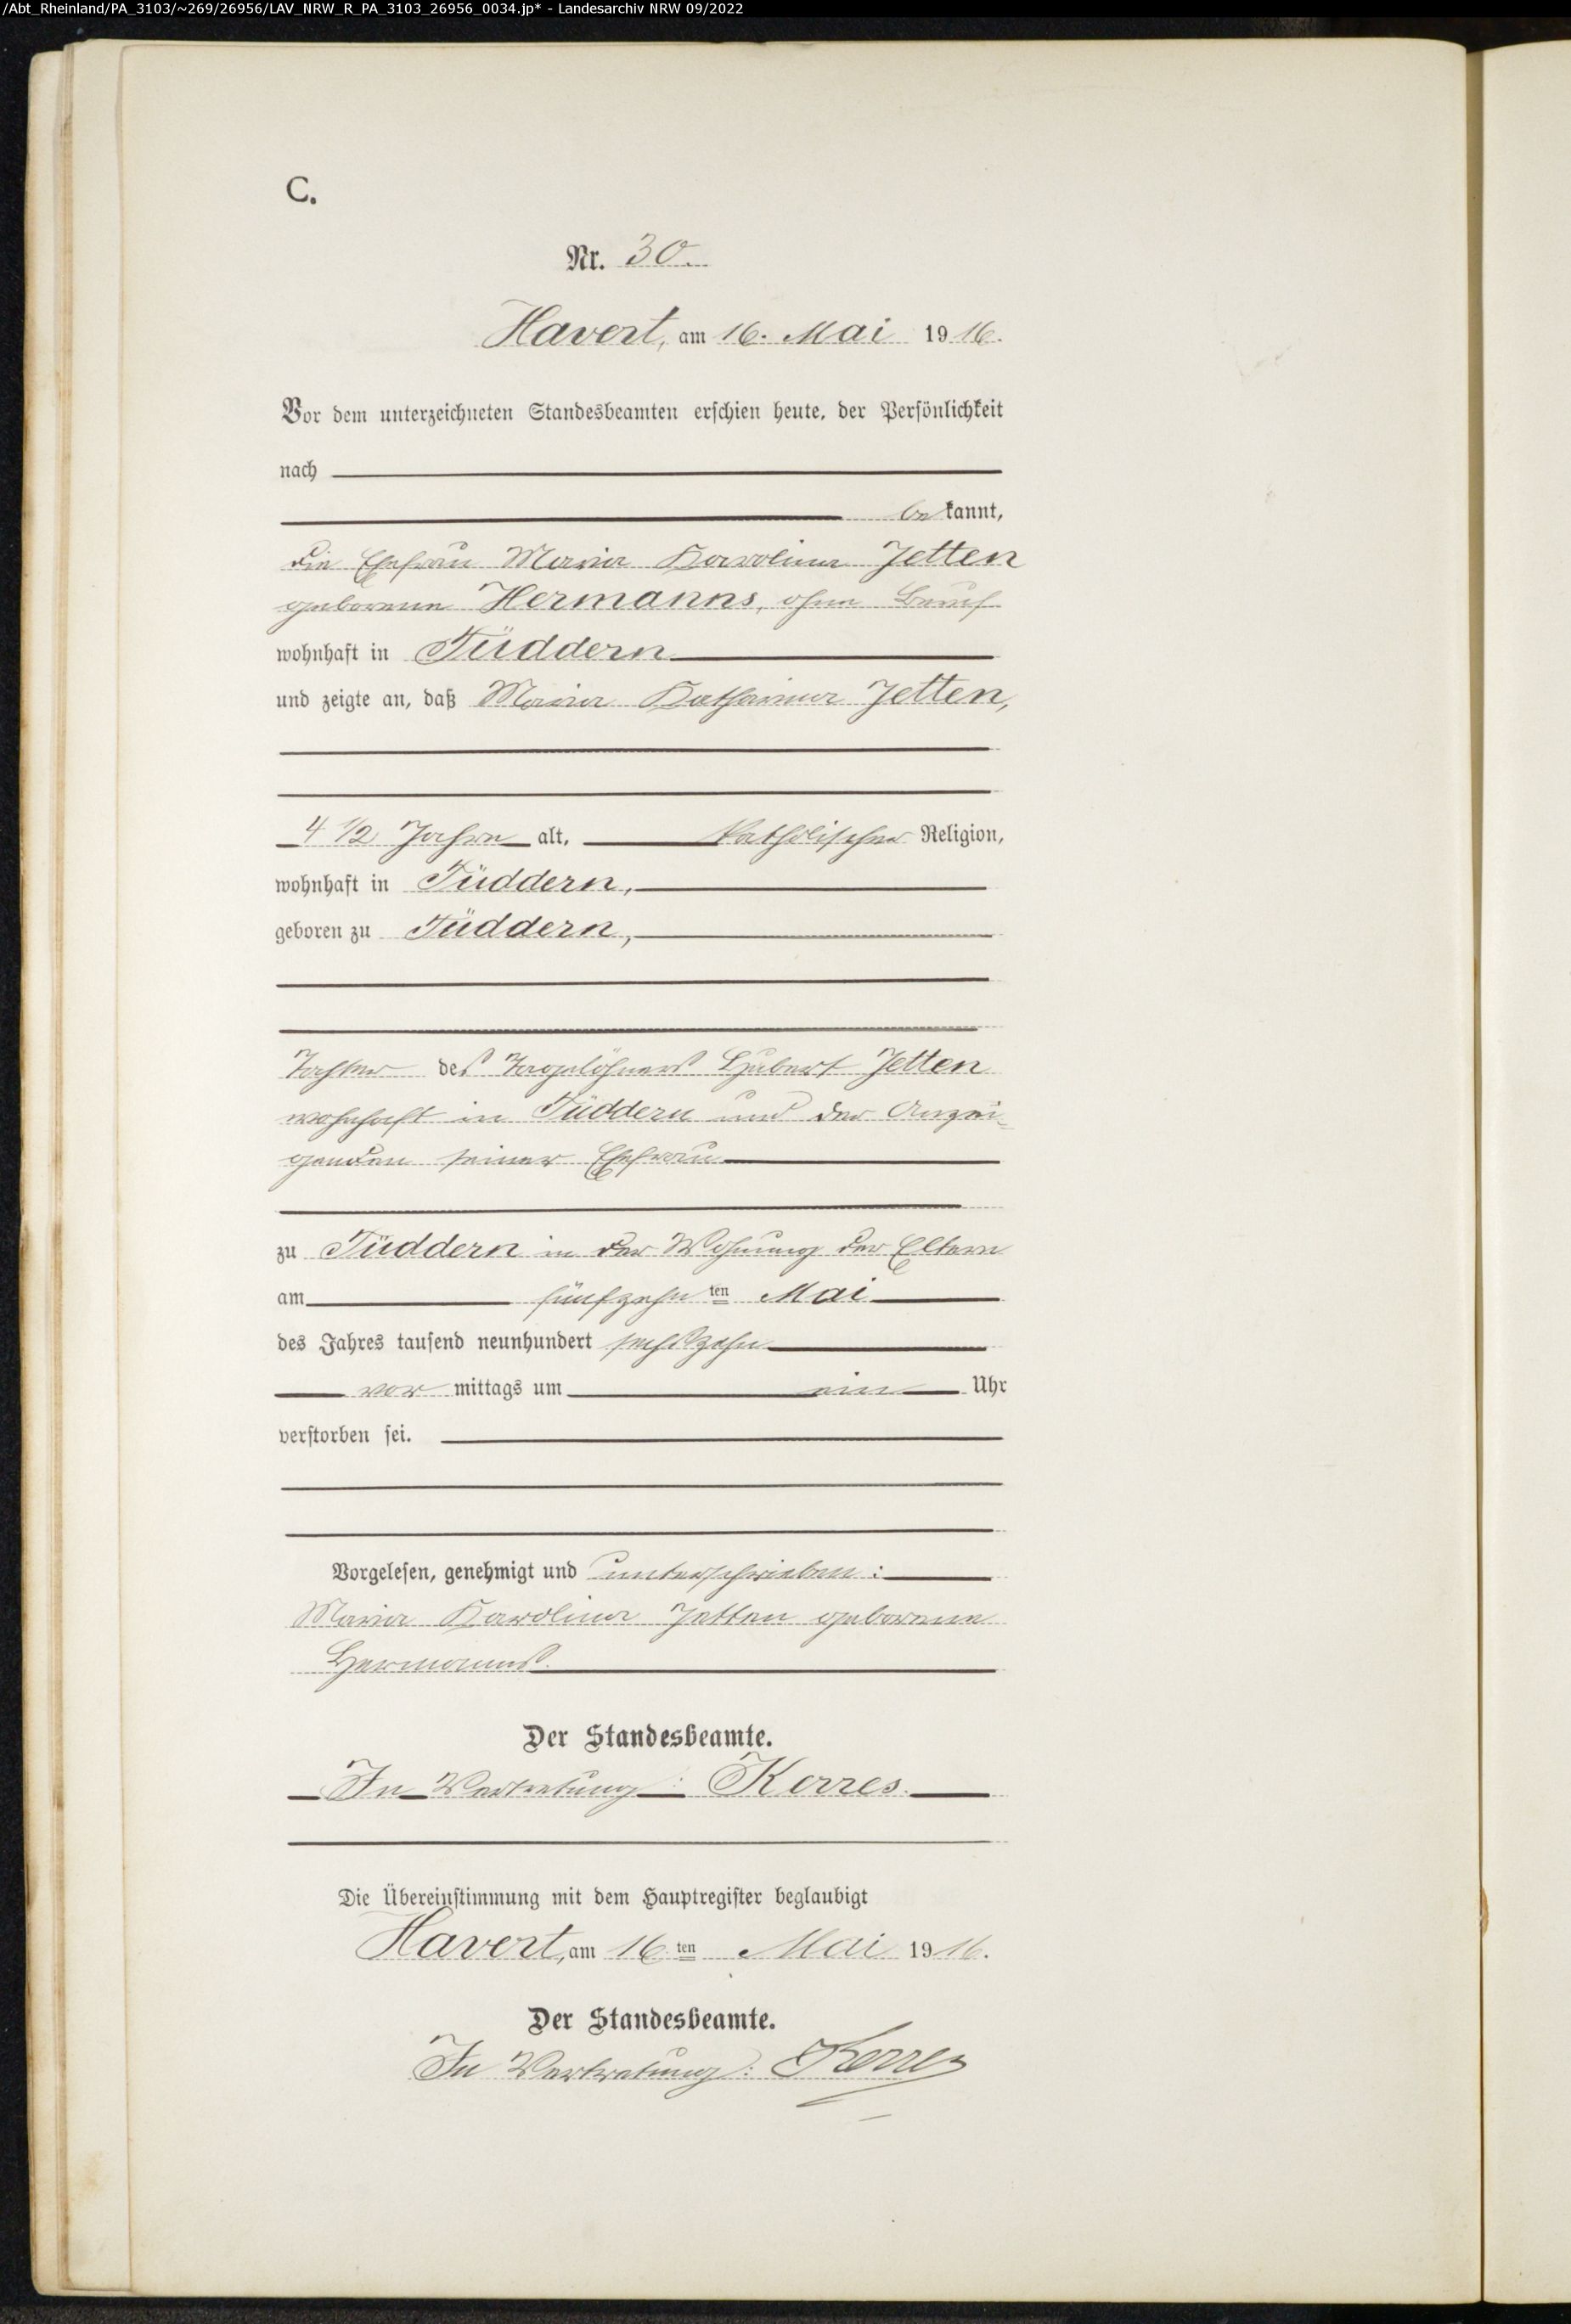 /Abt_Rheinland/PA_3103/~269/26956/LAV_NRW_R_PA_3103_26956_0034.jp* - Landesarchiv NRW 09/2022
C.
Nr. 30.
Havert, am 16. Mai 1916.
Vor dem unterzeichneten Standesbeamten erschien heute, der Persönlichkeit
nach
bekannt,
die Ehefrau Maria Karolina Jetten
geborene Hermanns, ohne Beruf
wohnhaft in Tüddern
und zeigte an, daß Maria Katharina Jetten,
4 1/2 Jahre alt, katholischer Religion,
wohnhaft in Tüddern,
geboren zu Tüddern,
Tochter des Tagelöhners Hubert Jetten
wohnhaft in Tüddern und der Anzei-
genden seiner Ehefrau
zu Tüddern in der Wohnung der Eltern
am fünfzehnten Mai
des Jahres tausend neunhundert sechszehn
vormittags um ein Uhr
verstorben sei.
Vorgelesen, genehmigt und unterschrieben:
Maria Karolina Jetten geborene
Hermanns.
Der Standesbeamte.
In Vertretung: Korres.
Die Übereinstimmung mit dem Hauptregister beglaubigt
Havert, am 16ten Mai 1916.
Der Standesbeamte.
In Vertretung: Korres